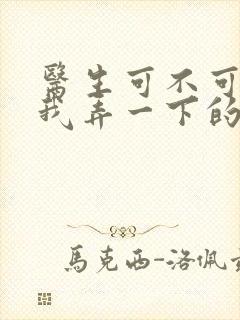 醫生可不可
我弄一下的
馬克西-洛佩